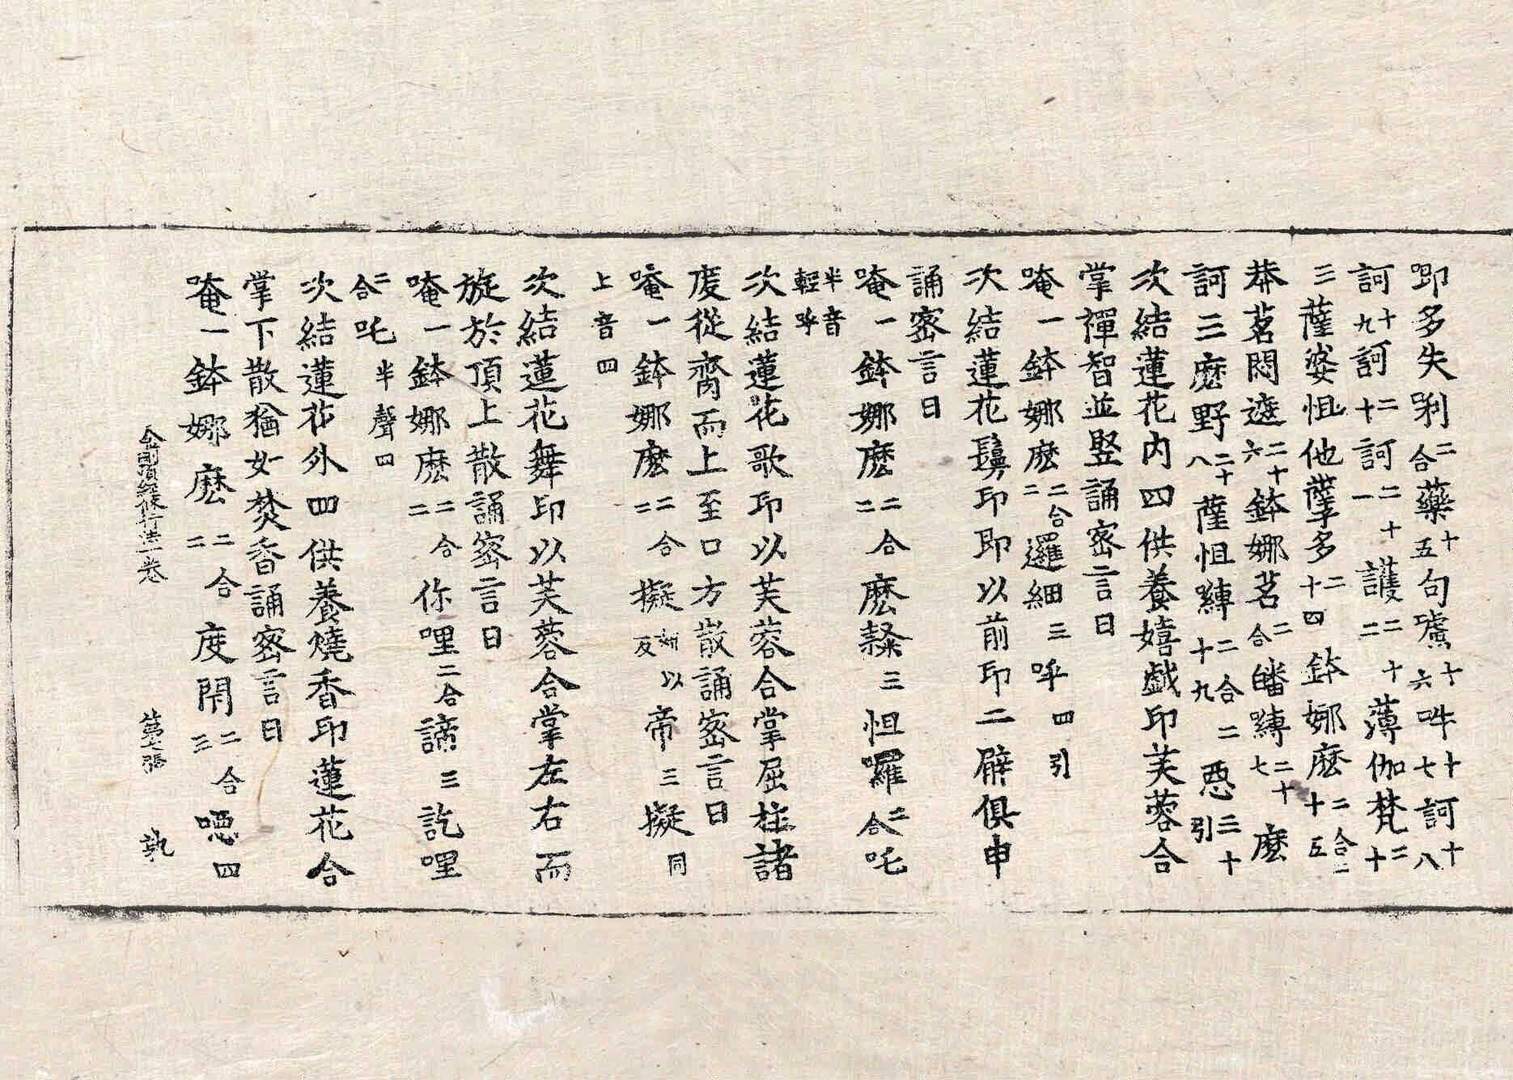 即多失唎二合藥十五句嚧十六吽十七訶十八
訶十九訶二十訶二十一護二十二薄伽梵二十
三薩婆怛他蘖多二十四鉢娜麼二合二十五
莽茗悶遮二十六鉢娜茗二合皤縛二十七麼
訶三麼野二十八薩怛縳二合二十九惡引三十
次結蓮花內四供養嬉戲印芙蓉合
掌禪智並竪誦密言曰
唵一鉢娜麼二合二邏細三呼引四
次結蓮花鬘印即以前印二臂俱申
誦密言曰
唵一鉢娜麼二合二麼隸三怛囉二合吒
半音輕呼
次結蓮花歌印以芙蓉合掌屈柱諸
度從齊而上至口方散誦密言曰
唵一鉢娜麼二合二擬以反帝三擬同
上音四
次結蓮花舞印以芙蓉合掌左右而
旋於頂上散誦密言曰
唵一鉢娜麼二合二你哩二合諦三訖哩
二合吒半聲四
次結蓮花外四供養燒香印蓮花合
掌下散猶如焚香誦密言曰
唵一鉢娜麼二合二度閇二合三嗯四
金剛頂經修行法一卷 第七張 孰